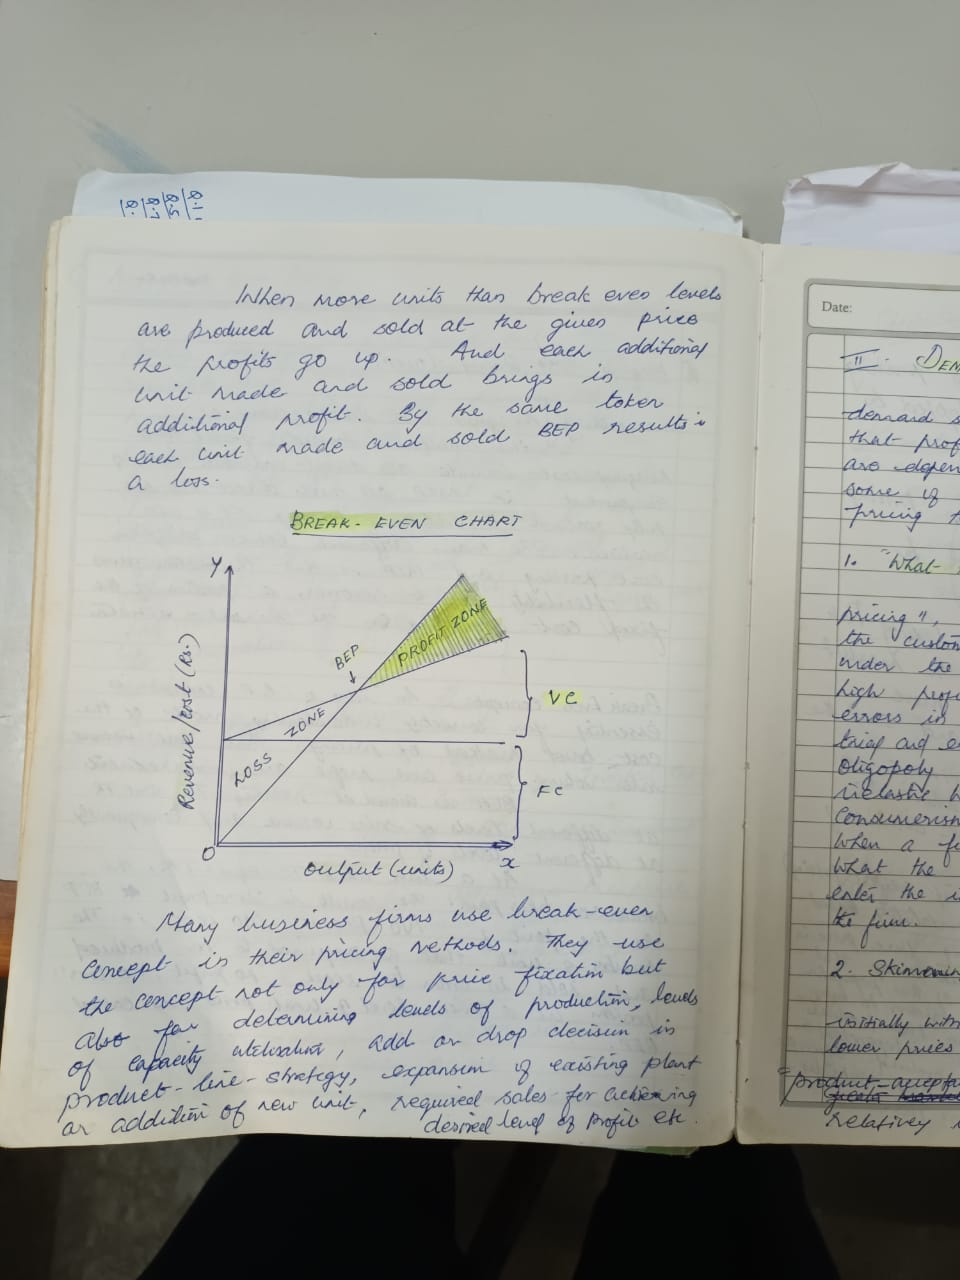 When more units than break even levels
are produced and sold at the given price
the profits go up. And each additional
unit made and sold brings in
additional profit. By the same token
each unit made and sold BEP results in
a loss.
BREAK-EVEN CHART
Y
Revenue/cost (Rs.)
BEP
PROFIT ZONE
LOSS ZONE
VC
FC
O
x
output (units)
Many business firms use break-even
concept in their pricing methods. They use
the concept not only for price fixation but
also for determining levels of production, levels
of capacity utilisation, add or drop decision in
product-line-strategy, expansion of existing plant
or addition of new unit, required sales for achieving
desired level of profits etc.
Date:
II. DEM
demand s
that prof
are depen
some of
pricing
1. "What
pricing",
the custom
under the
high prof
errors in
trial and e
oligopoly
Consumerism
when a fi
what the
enter the i
the firm.
2. Skimmin
initially with
lower prices
product-accepta
relatively